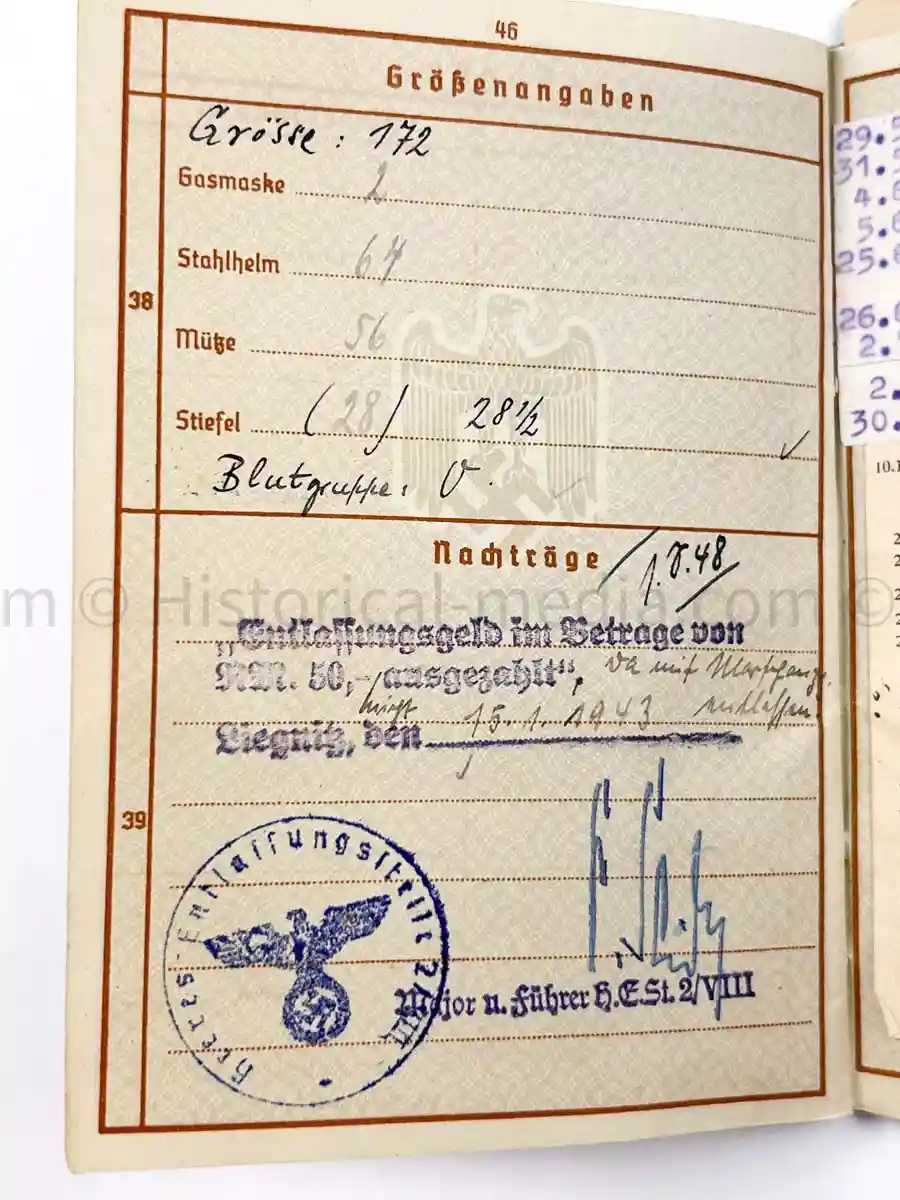 46
Größenangaben
Grösse: 172
Gasmaske 2
Stahlhelm 64
38
Mütze 56
Stiefel (28) 28 1/2
Blutgruppe: O.
Nachträge
m © Historical-media.com ©
„Entlassungsgeld im Betrage von
RM. 50,- ausgezahlt“, da mit
nicht 15.1.1943 entlassen.
Liegnitz, den
39
Heeres-Entlassungsstelle 2/VIII
Major u. Führer H.E.St. 2/VIII
29.5
31.5
4.6
5.6
25.6
26.6
2.
2.
30.
10.1